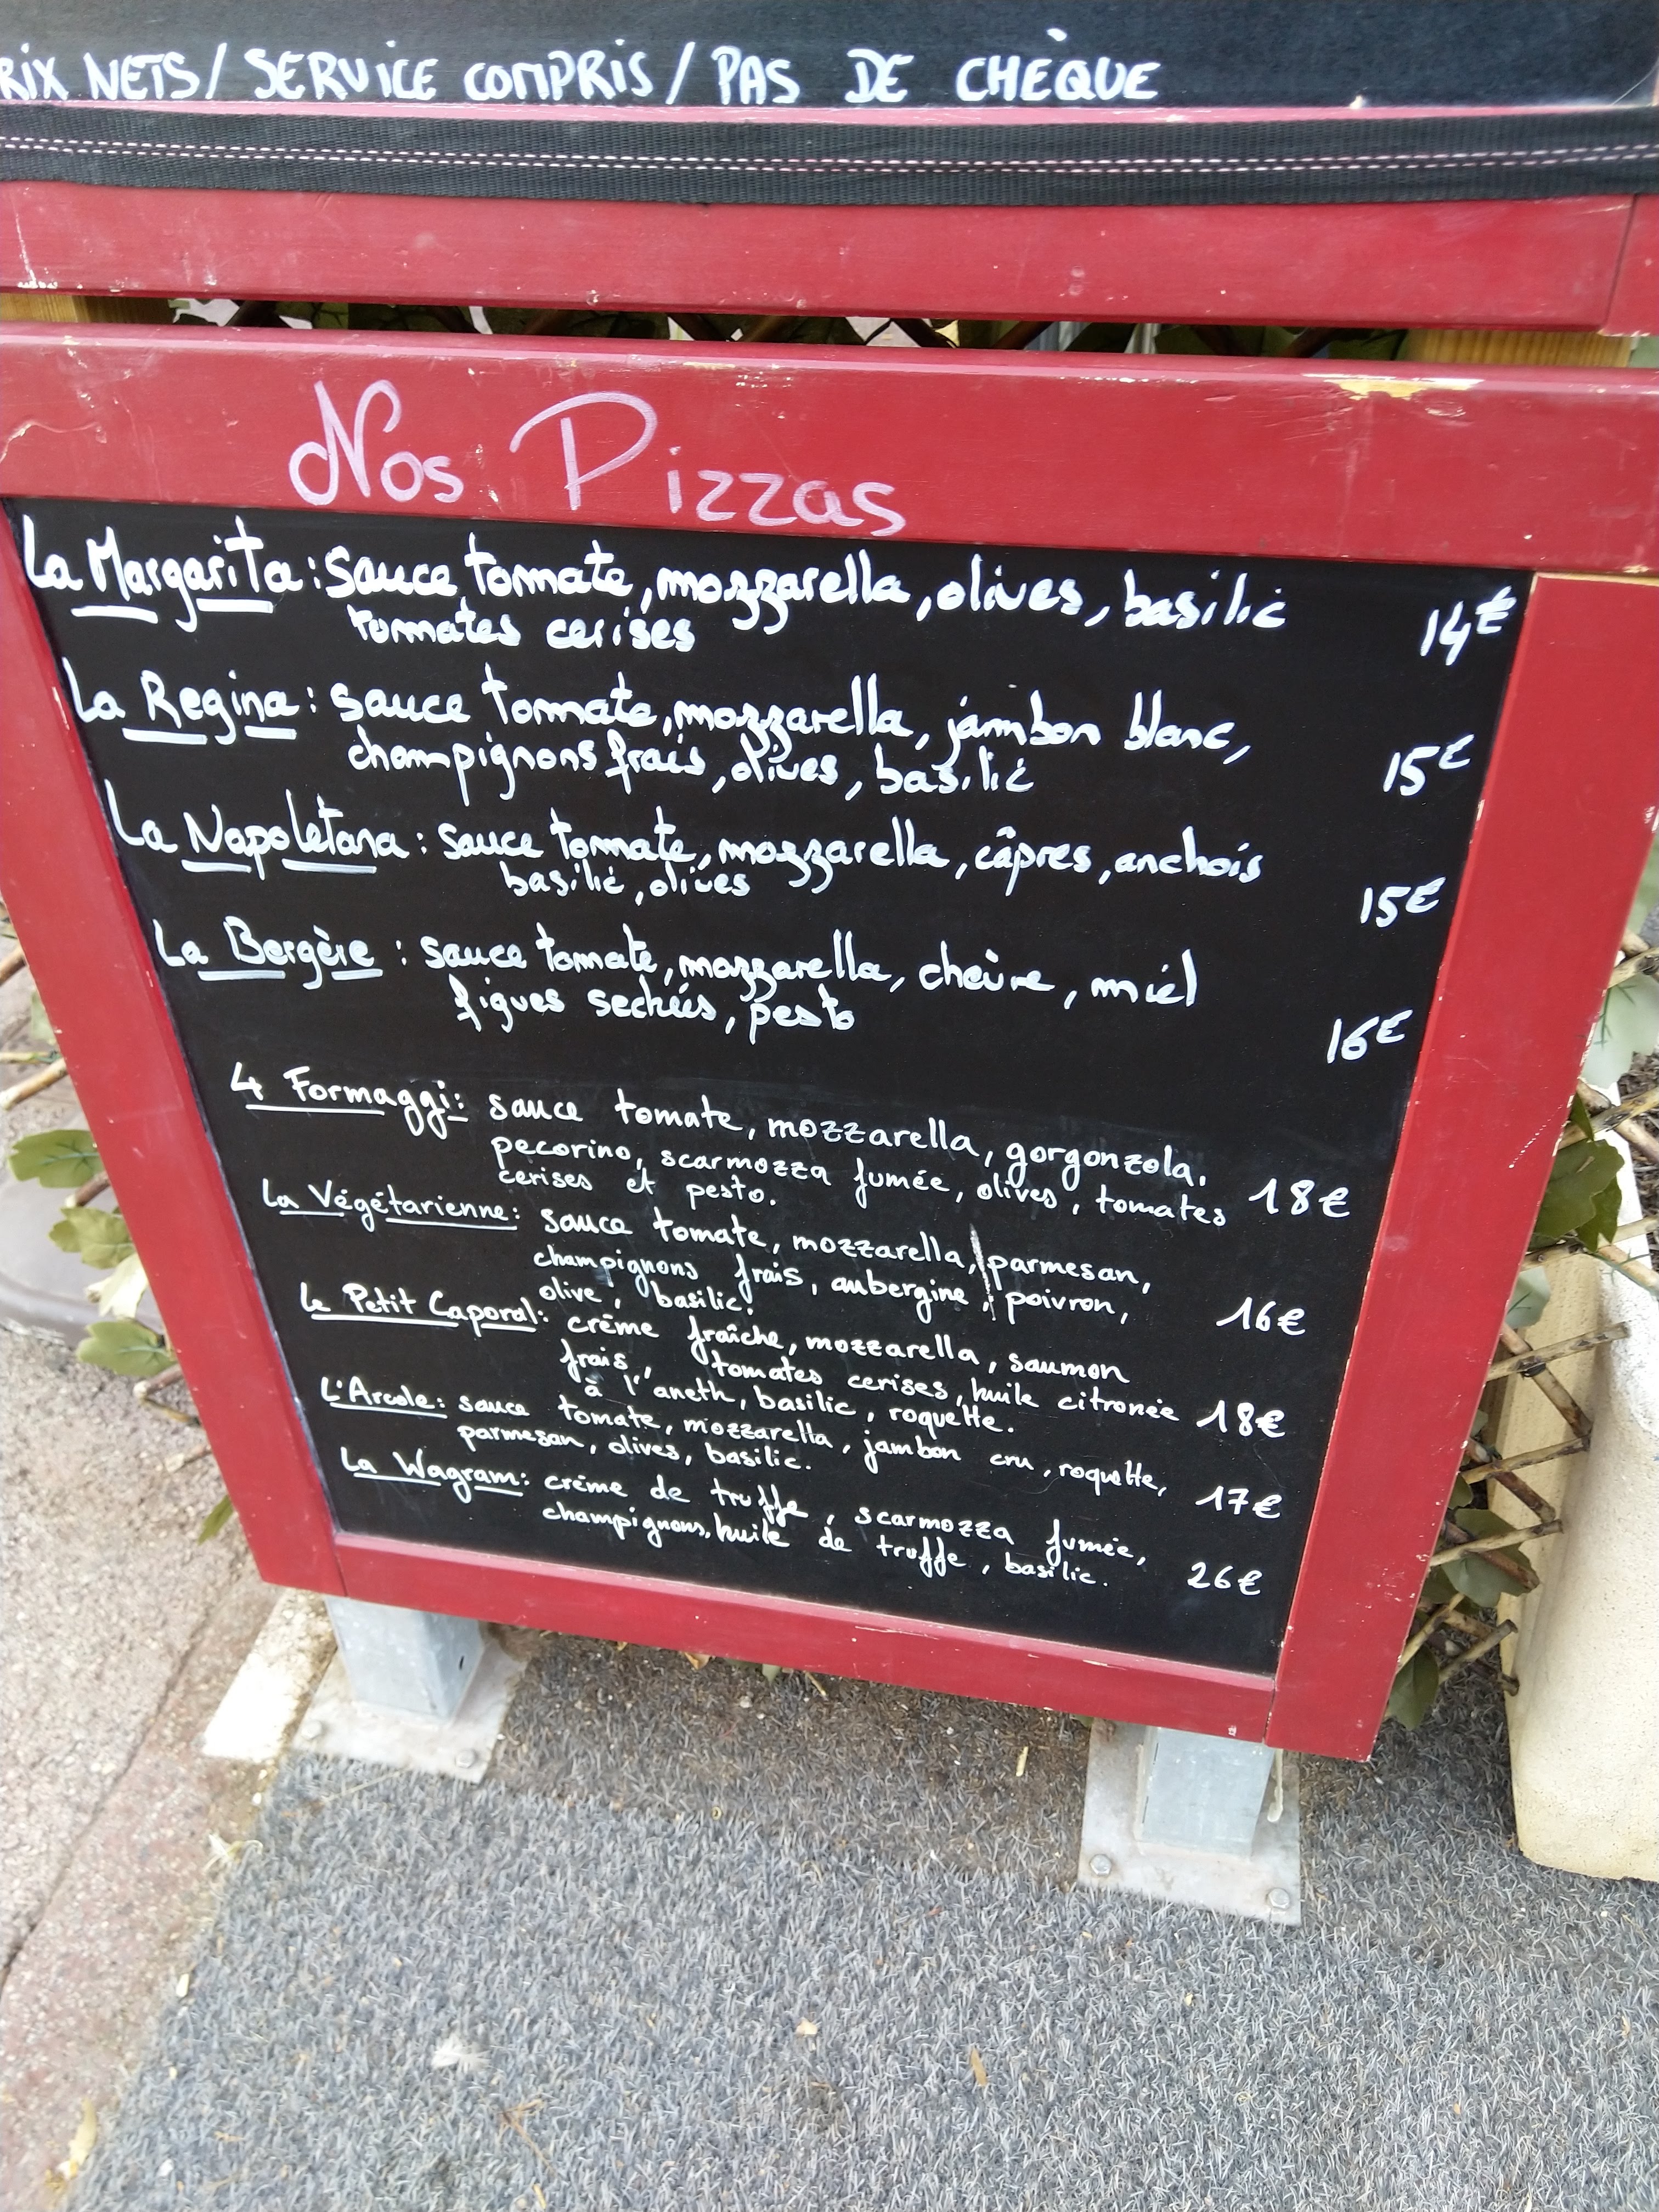 RIX NETS / SERVICE COMPRIS / PAS DE CHÈQUE
Nos Pizzas
La Margarita : Sauce tomate, mozzarella, olives, basilic 14€
tomates cerises
La Regina : sauce tomate, mozzarella, jambon blanc,
champignons frais, olives, basilic 15€
La Napoletana : sauce tomate, mozzarella, câpres, anchois
basilic, olives 15€
La Bergère : sauce tomate, mozzarella, chèvre, miel
figues sechées, pesto 16€
4 Formaggi : sauce tomate, mozzarella, gorgonzola,
pecorino, scarmozza fumée, olives, tomates 18€
cerises et pesto.
La Végétarienne : sauce tomate, mozzarella, parmesan,
champignons frais, aubergine, poivron, 16€
olive, basilic.
Le Petit Caporal : crème fraîche, mozzarella, saumon
frais, tomates cerises, huile citronée 18€
à l'aneth, basilic, roquette.
L'Arcole : sauce tomate, mozzarella, jambon cru, roquette,
parmesan, olives, basilic. 17€
La Wagram : crème de truffe, scarmozza fumée,
champignons, huile de truffe, basilic. 26€